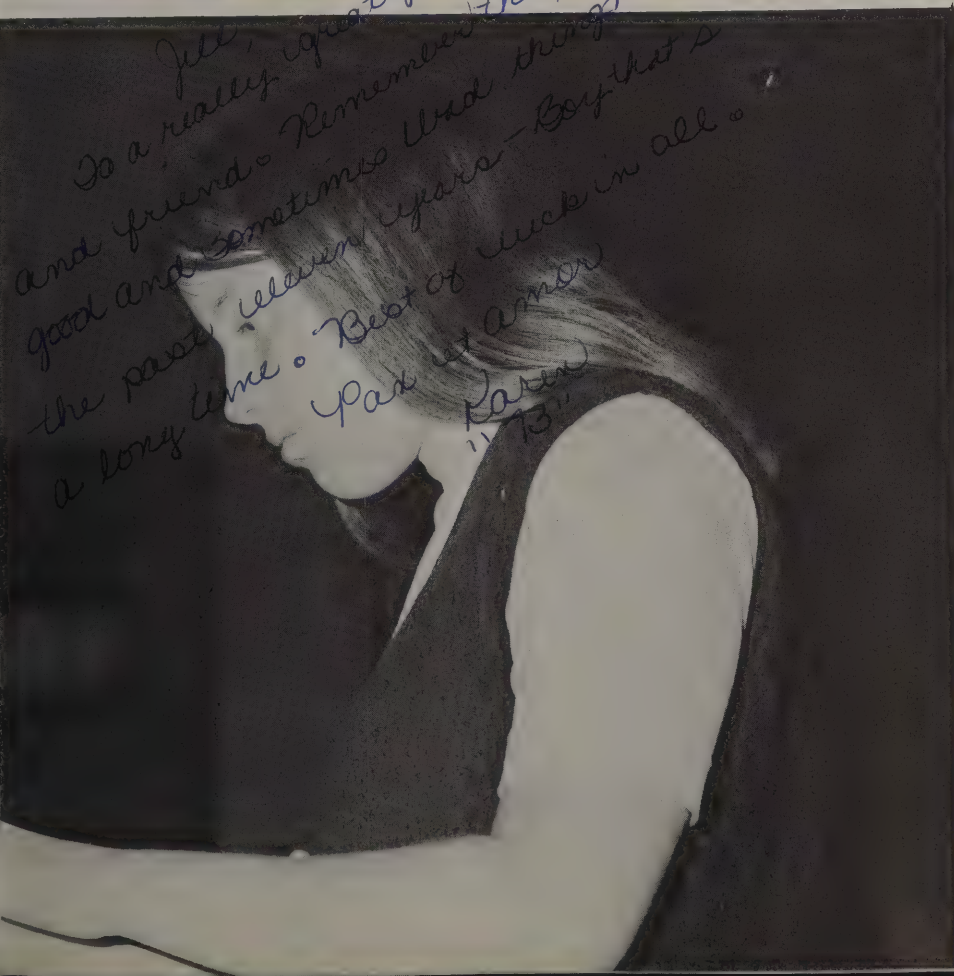 Jill,
To a really great
and friend. Remember the
good and sometimes bad things
the past eleven years - Boy that's
a long time. Best of luck in all.
Pax et amor
Karen
"73"